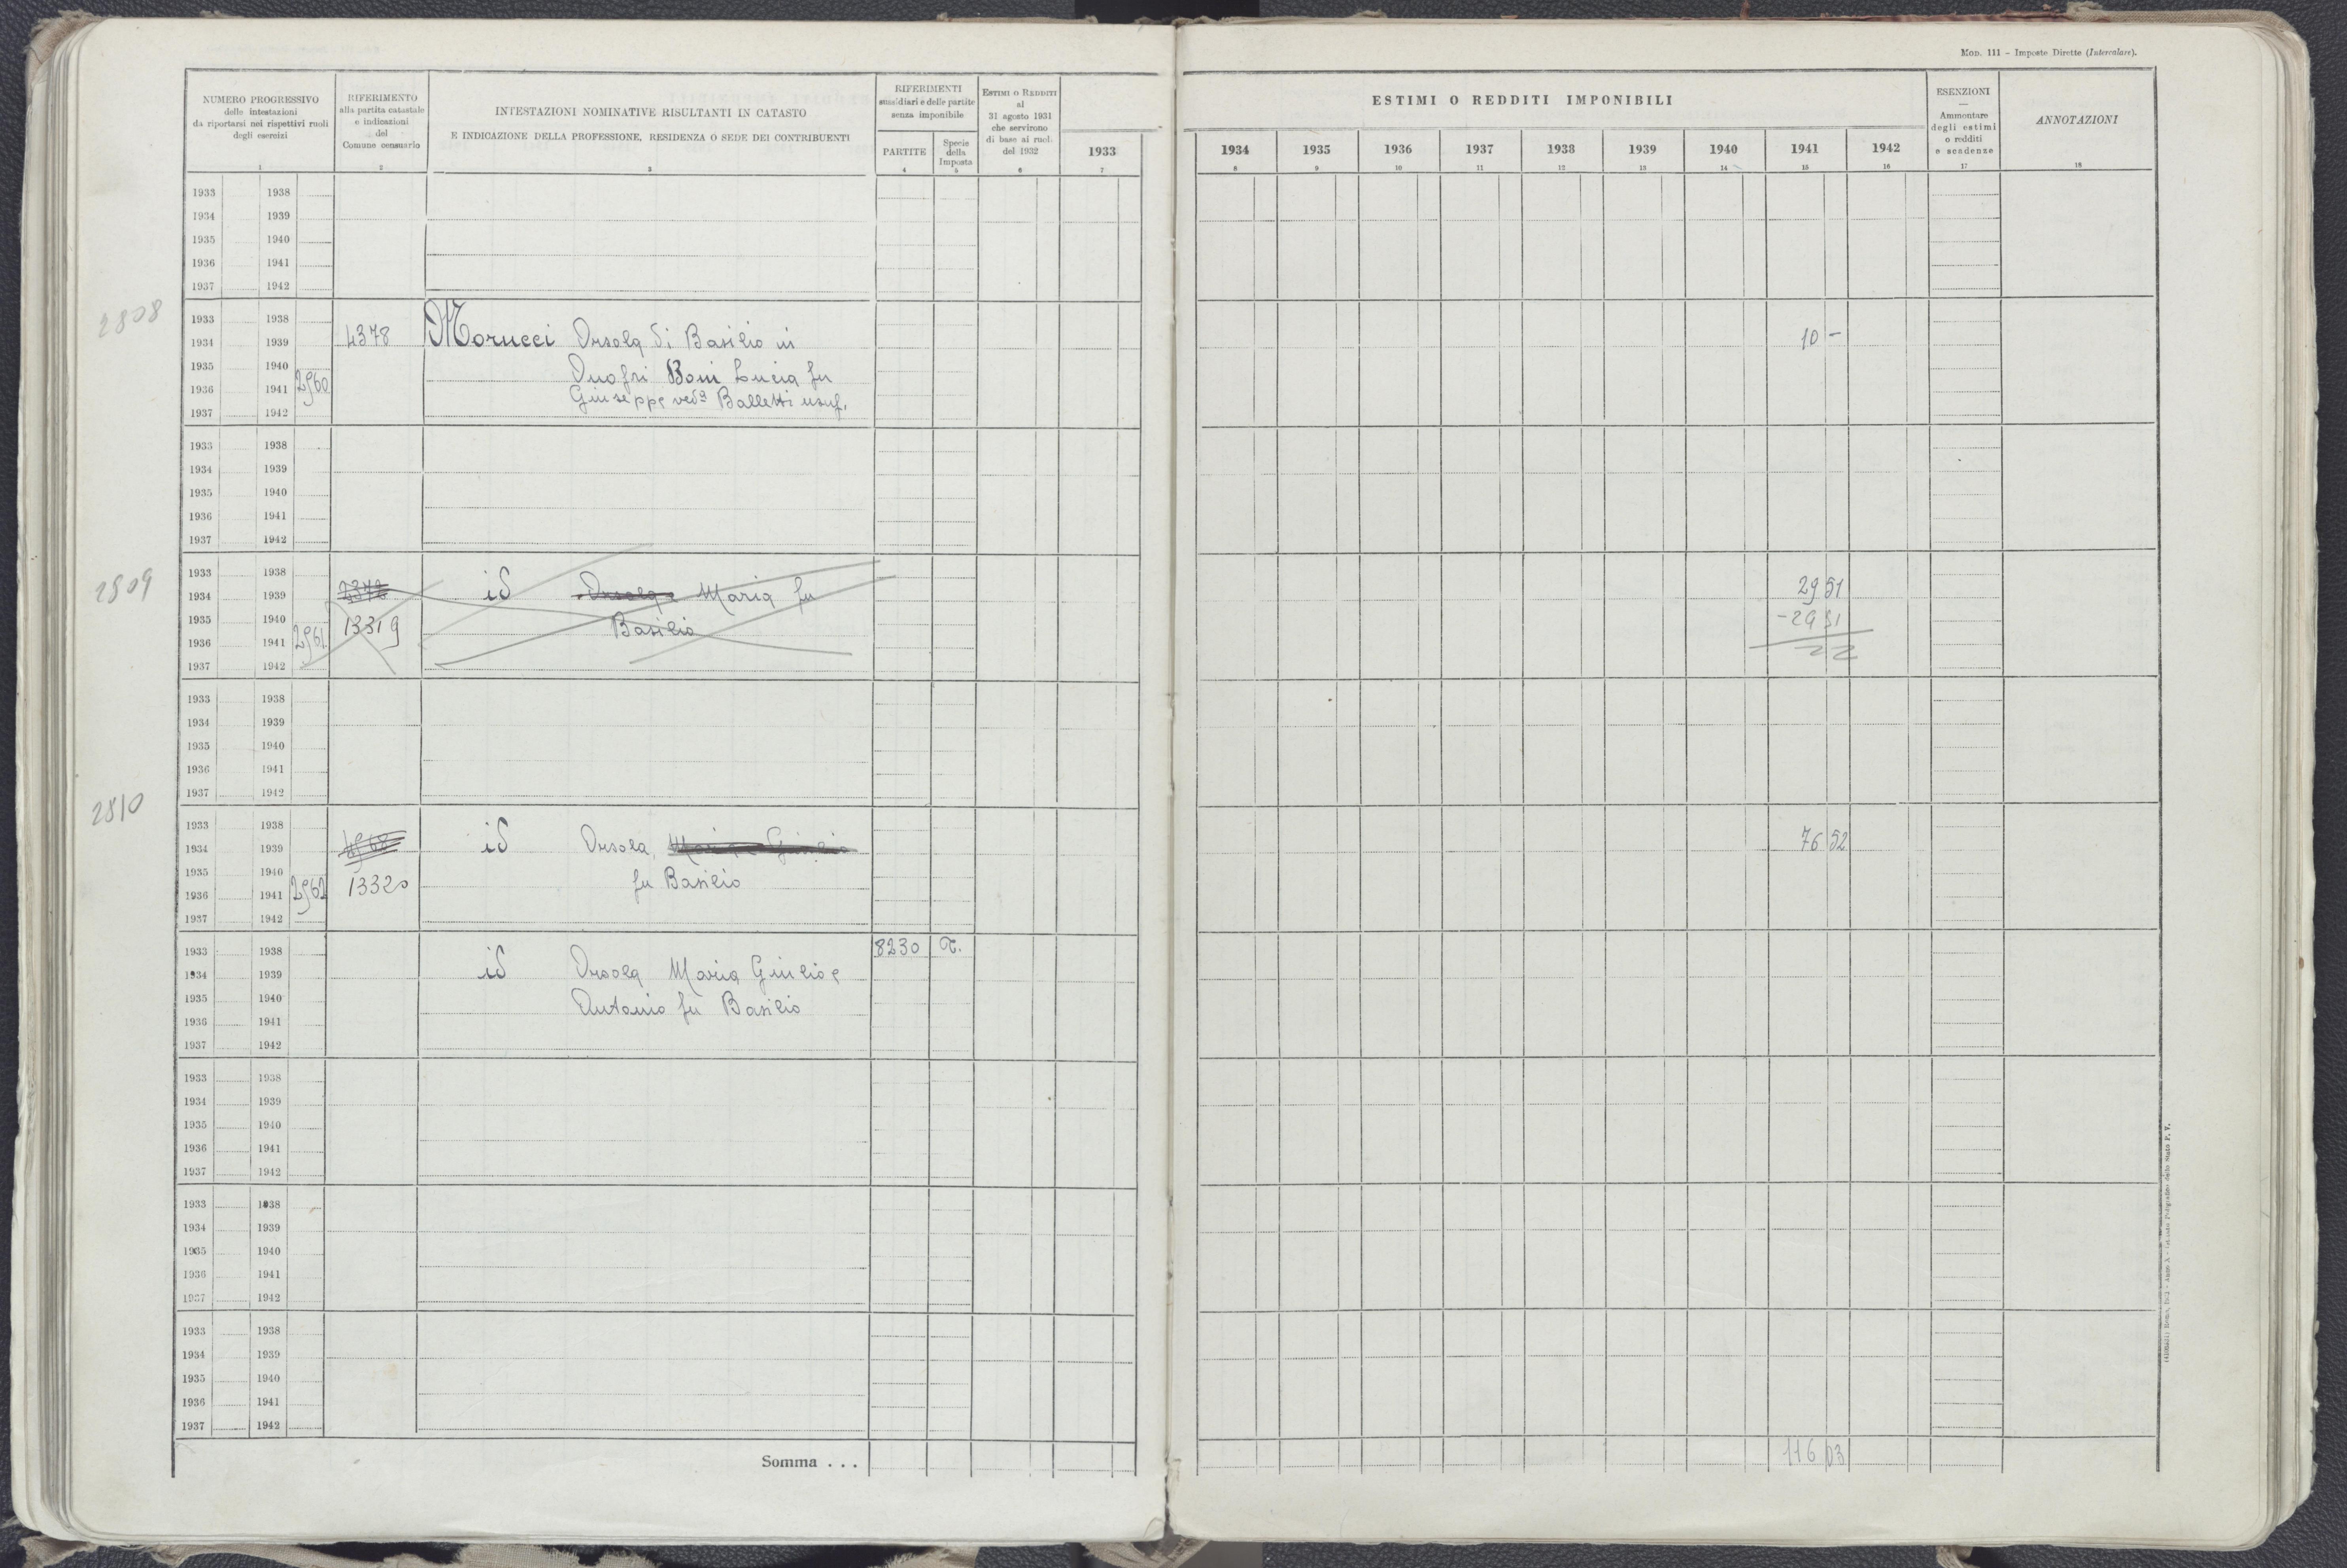 Mod. 111 - Imposte Dirette (Intercalare).
NUMERO PROGRESSIVO
delle intestazioni
da riportarsi nei rispettivi ruoli
degli esercizi
1
RIFERIMENTO
alla partita catastale
e indicazioni
del
Comune censuario
2
INTESTAZIONI NOMINATIVE RISULTANTI IN CATASTO
E INDICAZIONE DELLA PROFESSIONE, RESIDENZA O SEDE DEI CONTRIBUENTI
3
RIFERIMENTI
sussidiari e delle partite
senza imponibile
PARTITE
4
Specie
della
Imposta
5
ESTIMI O REDDITI
al
31 agosto 1931
che servirono
di base ai ruoli
del 1932
6
1933
7
ESTIMI O REDDITI IMPONIBILI
1934 1935 1936 1937 1938 1939 1940 1941 1942
8 9 10 11 12 13 14 15 16
ESENZIONI
—
Ammontare
degli estimi
o redditi
e scadenze
17
ANNOTAZIONI
18
1933 1938
1934 1939
1935 1940
1936 1941
1937 1942
2808
1933 1938
1934 1939 4378 Morucci Orsola di Basilio in 10 -
1935 1940 Onofri Boni Lucia fu
1936 1941 2960 Giuseppe ved.a Balletti usuf.
1937 1942
1933 1938
1934 1939
1935 1940
1936 1941
1937 1942
2809
1933 1938
1934 1939 id Orsola e Maria fu 29 51
1935 1940 13319 Basilio -29 51
1936 1941 2961
1937 1942
1933 1938
1934 1939
1935 1940
1936 1941
1937 1942
2810
1933 1938
1934 1939 id Orsola, 76 52
1935 1940 fu Basilio
1936 1941 2962 13320
1937 1942
1933 1938 8230 T.
1934 1939 id Orsola Maria Giulio e
1935 1940 Antonio fu Basilio
1936 1941
1937 1942
1933 1938
1934 1939
1935 1940
1936 1941
1937 1942
1933 1938
1934 1939
1935 1940
1936 1941
1937 1942
1933 1938
1934 1939
1935 1940
1936 1941
1937 1942
Somma . . . 116 03